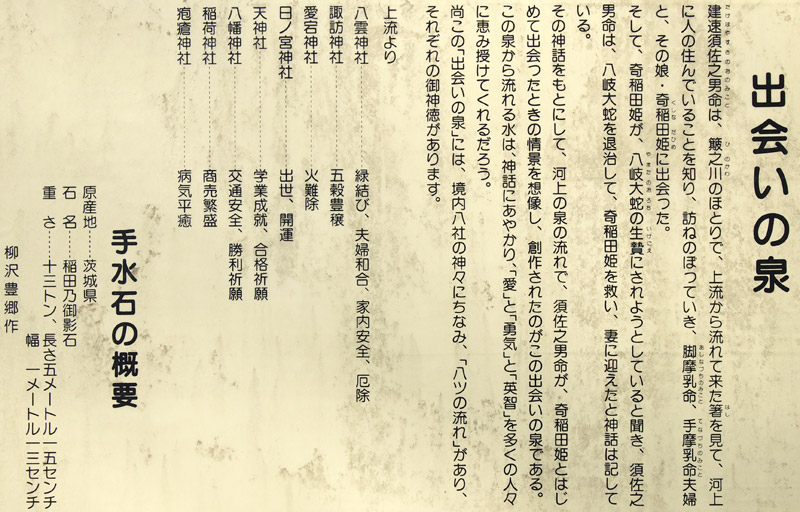 出会いの泉
建速須佐之男命は、簸之川のほとりで、上流から流れて来た箸を見て、河上
に人の住んでいることを知り、訪ねのぼっていき、脚摩乳命、手摩乳命夫婦
と、その娘・奇稲田姫に出会った。
そして、奇稲田姫が、八岐大蛇の生贄にされようとしていると聞き、須佐之
男命は、八岐大蛇を退治して、奇稲田姫を救い、妻に迎えたと神話は記して
いる。
その神話をもとにして、河上の泉の流れで、須佐之男命が、奇稲田姫とはじ
めて出会ったときの情景を想像し、創作されたのがこの出会いの泉である。
この泉から流れる水は、神話にあやかり、「愛」と「勇気」と「英智」を多くの人々
に恵み授けてくれるだろう。
尚この「出会いの泉」には、境内八社の神々にちなみ、「八ツの流れ」があり、
それぞれの御神徳があります。
上流より
八雲神社………縁結び、夫婦和合、家内安全、厄除
諏訪神社………五穀豊穣
愛宕神社………火難除
日ノ宮神社………出世、開運
天神社………学業成就、合格祈願
八幡神社………交通安全、勝利祈願
稲荷神社………商売繁盛
疱瘡神社………病気平癒
手水石の概要
原産地……茨城県
石　名……稲田乃御影石
重　さ……十三トン、長さ五メートル一五センチ
幅　一メートル一三センチ
柳沢豊郷作